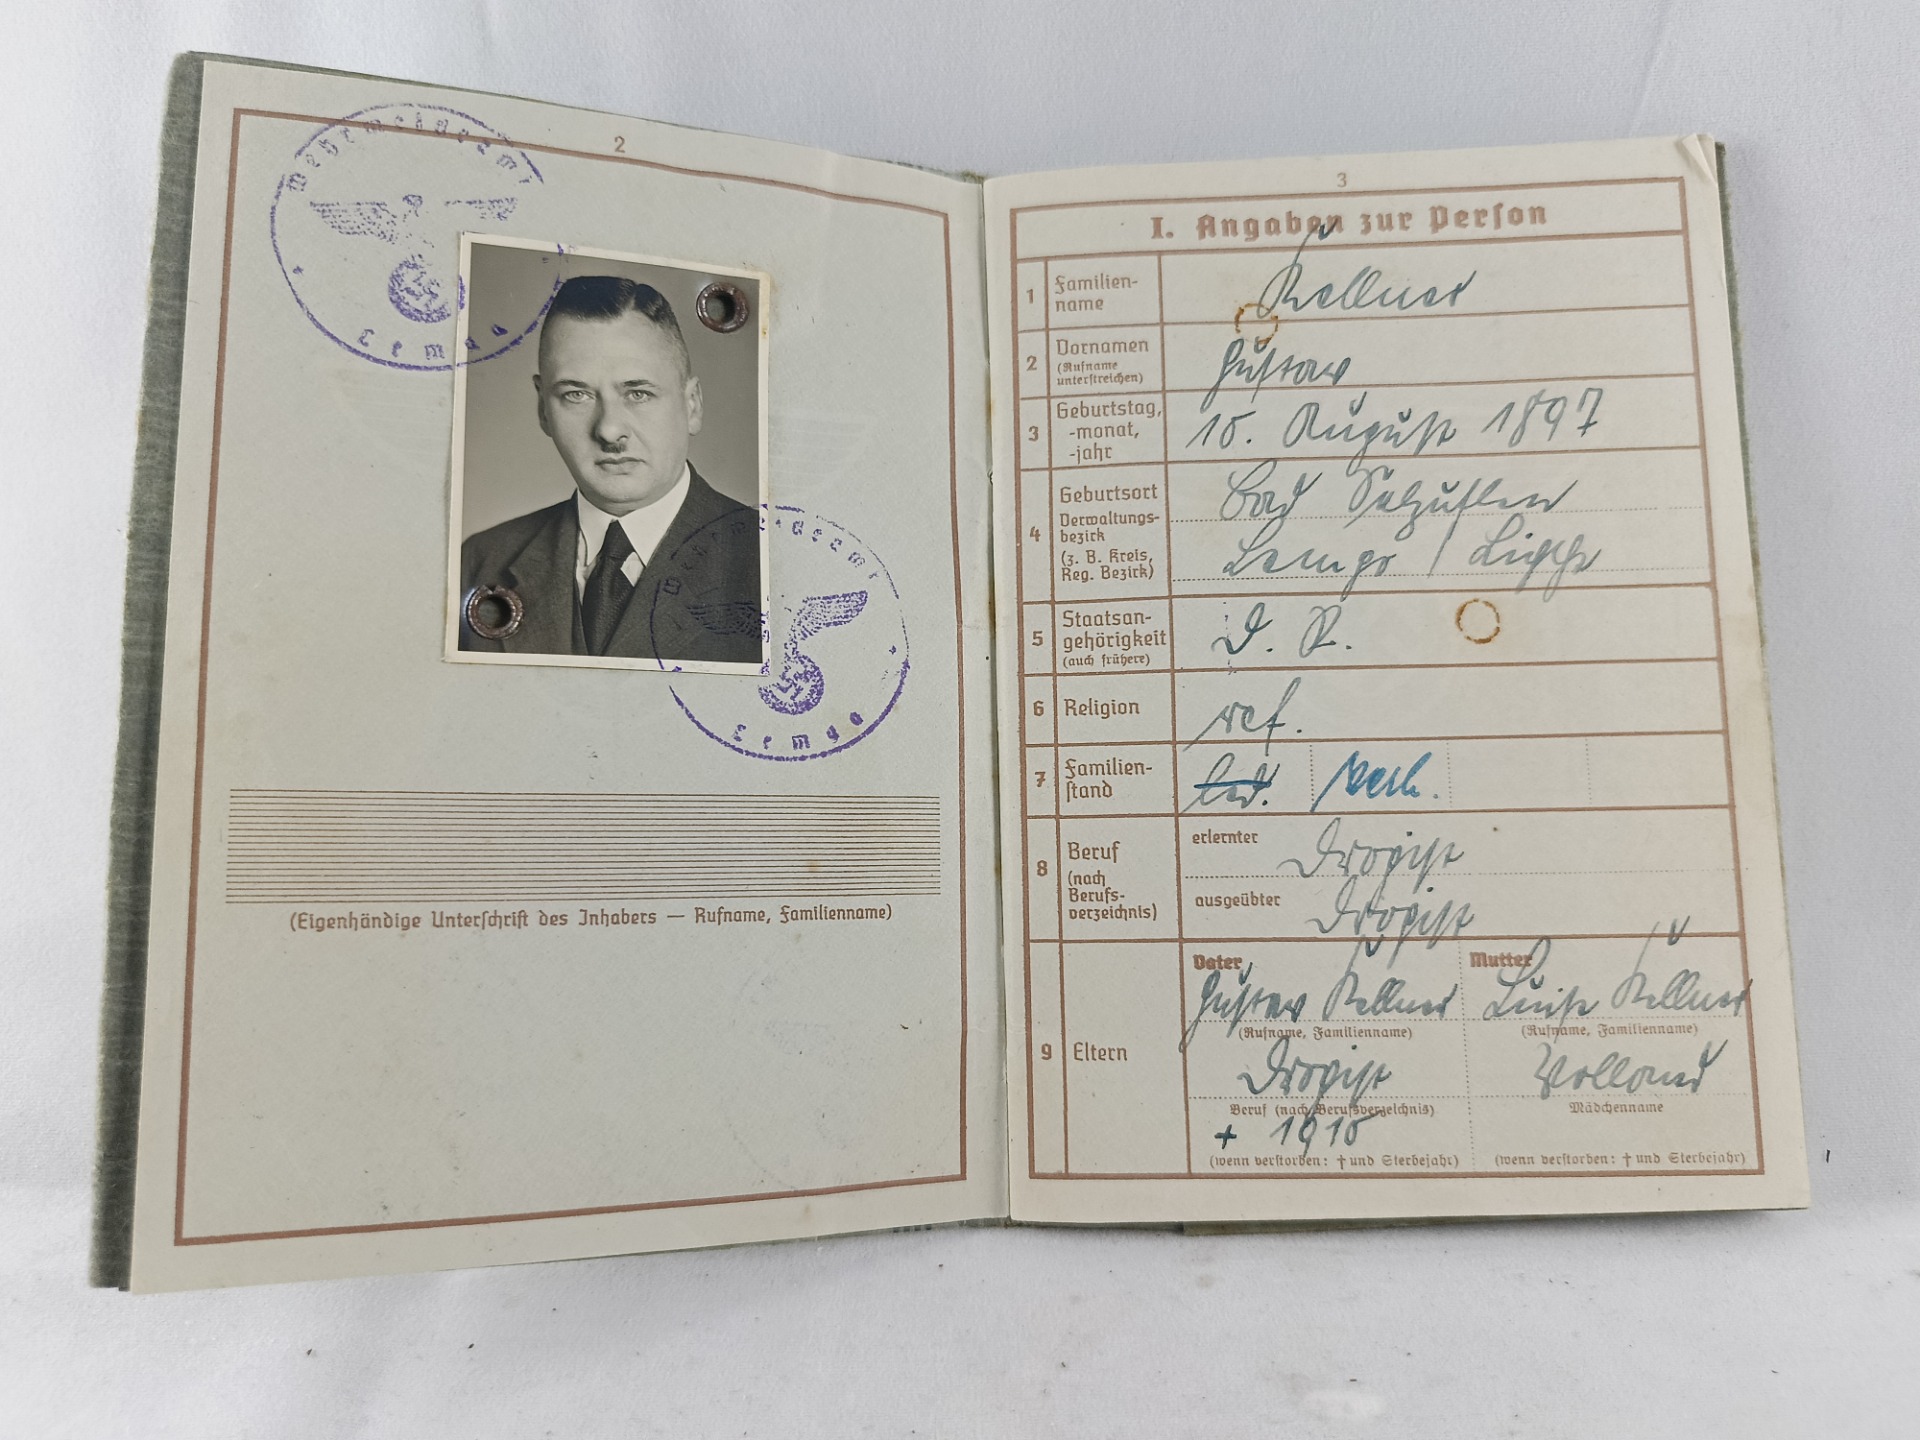 2
Wehrmeldeamt
Lemgo
Wehrmeldeamt
Lemgo
(Eigenhändige Unterschrift des Inhabers — Rufname, Familienname)
3
I. Angaben zur Person
1 Familien-
name
Kellner
2 Vornamen
(Rufname
unterstreichen)
Gustav
3 Geburtstag,
-monat,
-jahr
15. August 1897
4 Geburtsort
Verwaltungs-
bezirk
(z. B. Kreis,
Reg. Bezirk)
Bad Salzuflen
Lemgo / Lippe
5 Staatsan-
gehörigkeit
(auch frühere)
D. R.
6 Religion
ref.
7 Familien-
stand
led. verh.
8 Beruf
(nach
Berufs-
verzeichnis)
erlernter Drogist
ausgeübter Drogist
9 Eltern
Vater
Gustav Kellner
(Rufname, Familienname)
Drogist
Beruf (nach Berufsverzeichnis)
+ 1915
(wenn verstorben: † und Sterbejahr)
Mutter
Luise Kellner
(Rufname, Familienname)
Volland
Mädchenname
(wenn verstorben: † und Sterbejahr)